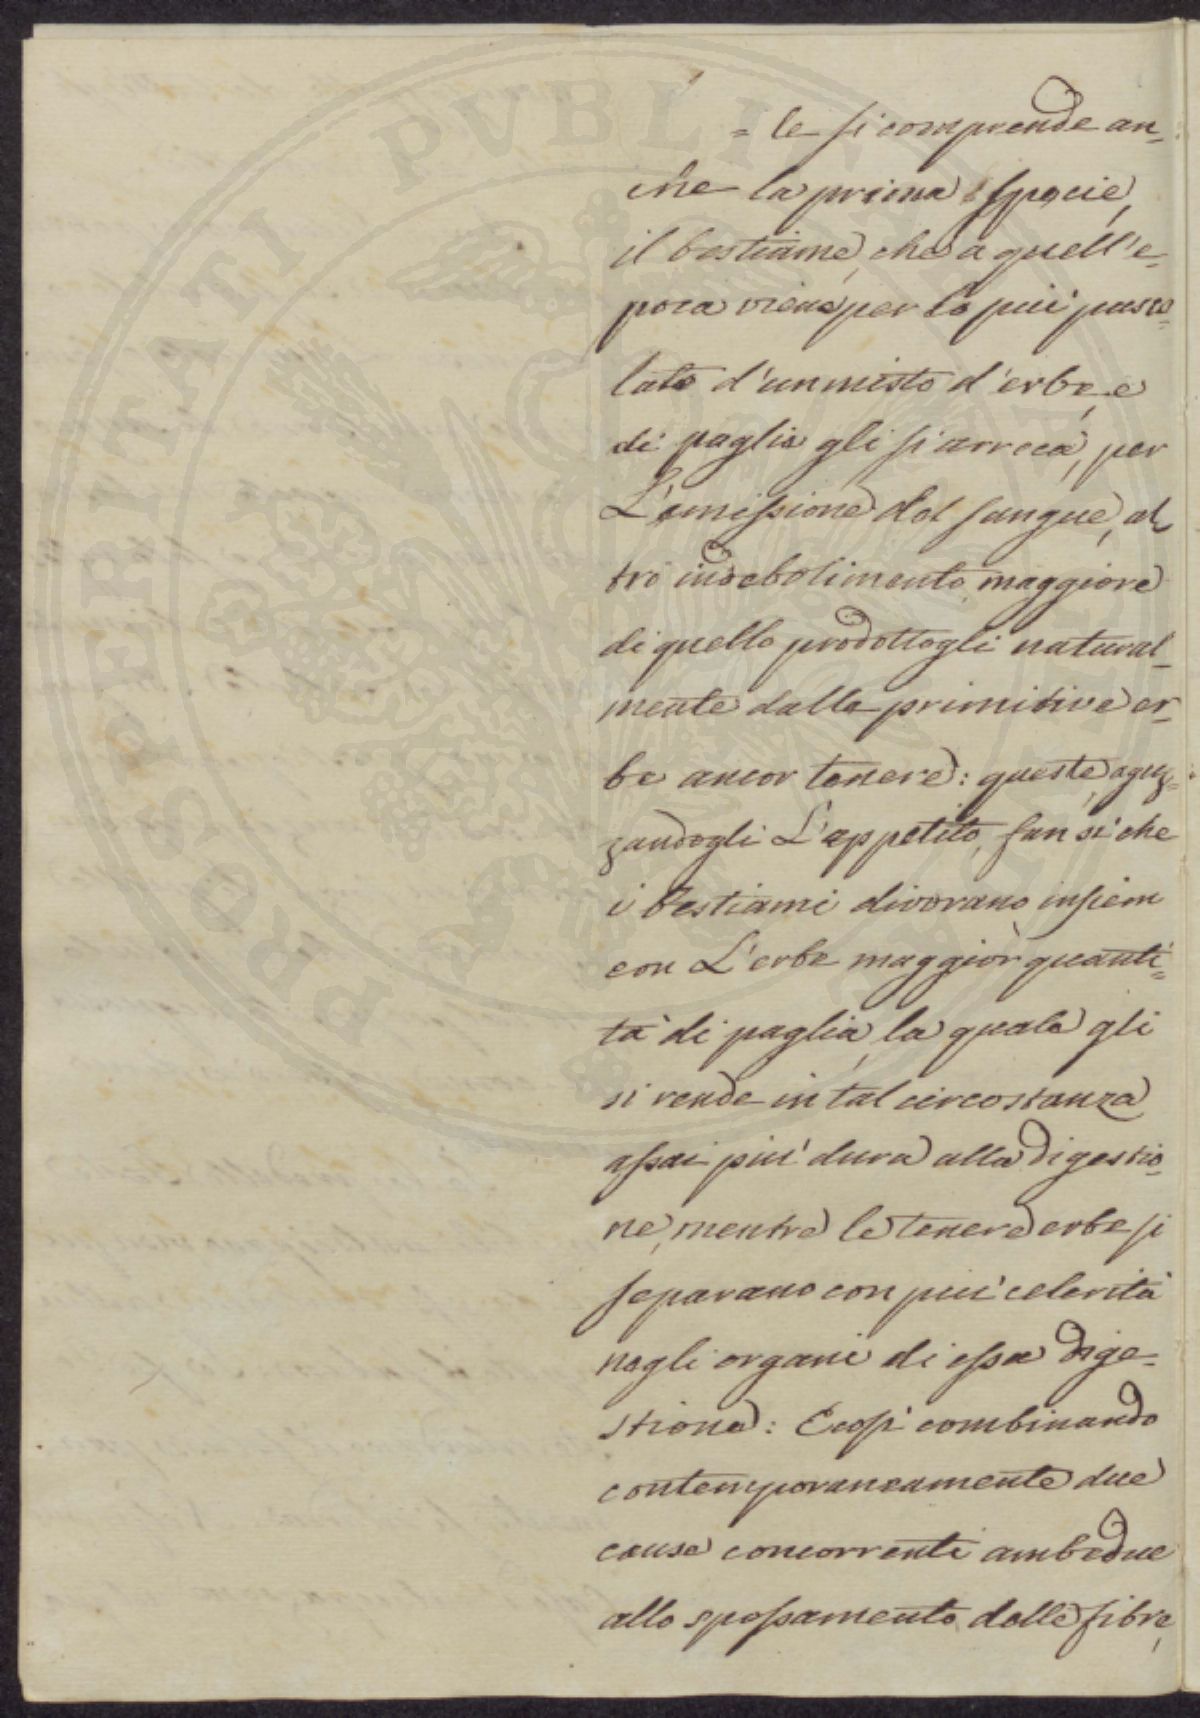 = le si comprende an-
che la prima specie,
il bestiame, che a quell'e-
poca viene per lo più pasco-
lato d'un misto d'erbe, e
di paglia gli si arreca, per
L'emissione del sangue, al
tro indebolimento, maggiore
di quello prodottogli natural-
mente dalle primitive er-
be ancor tenere: queste, aguz-
zandogli L'appetito, fan sì che
i Bestiami divorano insiem
con L'erbe maggior quanti-
tà di paglia, la quale gli
si rende in tal circostanza
assai più dura alla digestio-
ne, mentre le tenere erbe si
separano con più celerità
negli organi di essa dige-
stione: E così combinando
contemporaneamente due
cause concorrenti ambedue
allo spossamento delle fibre,
PROSPERITATI PVBLICAE